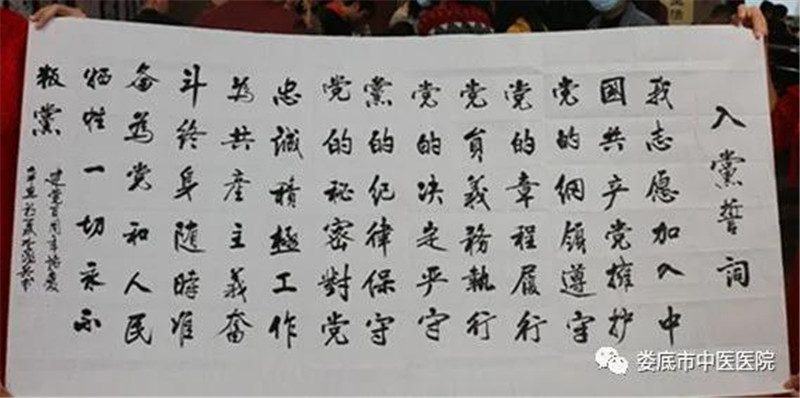 入黨誓詞
我志愿加入中
國共产党擁护
党的綱領遵守
党的章程履行
党員義務執行
党的决定严守
黨的纪律保守
党的秘密對党
忠誠積極工作
為共產主義奮
斗终身随時准
备為党和人民
牺牲一切永不
叛黨
建党百周年
娄底市中医医院